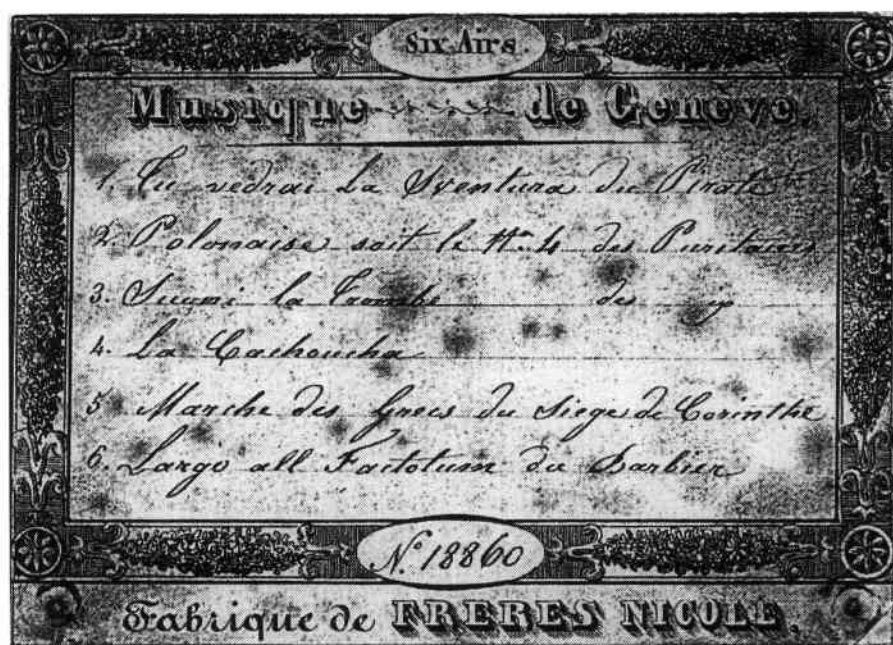 Six Airs.
Musique de Genève.
1. Tu vedrai la Sventura du Pirate
2. Polonaise soit le No. 4 des Puritains
3. Suoni la Trombe de
4. La Cachoucha
5 Marche des Grecs du Siege de Corinthe
6. Largo all Factotum du Barbier
No. 18860
Fabrique de FRERES NICOLE.